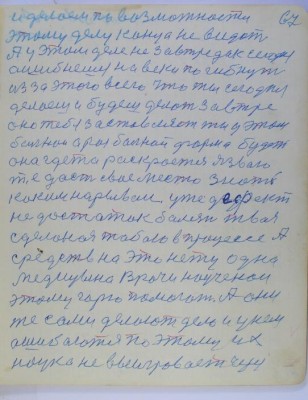 и делоем по возможности 67
этому делу конца не видат
А у этом деле не завтра дак
ошибнеш на веко погибнут
из за этого всего, што ты сегодня
делоеш и будеш делот завтра
оно тебя заставляет ты у этом
больное а роз больной форма будет
она где то раскроется язвою
те даст свое место
каким нарывам уже дефект
не достаток болят твоя
сделоноя тобою в процесе А
средств на это нету одна
медицина Врачи наученои
этому горю помогат. А они
же сами делоют дело и у нем
ошибаются по этому их
наука не выигрывает